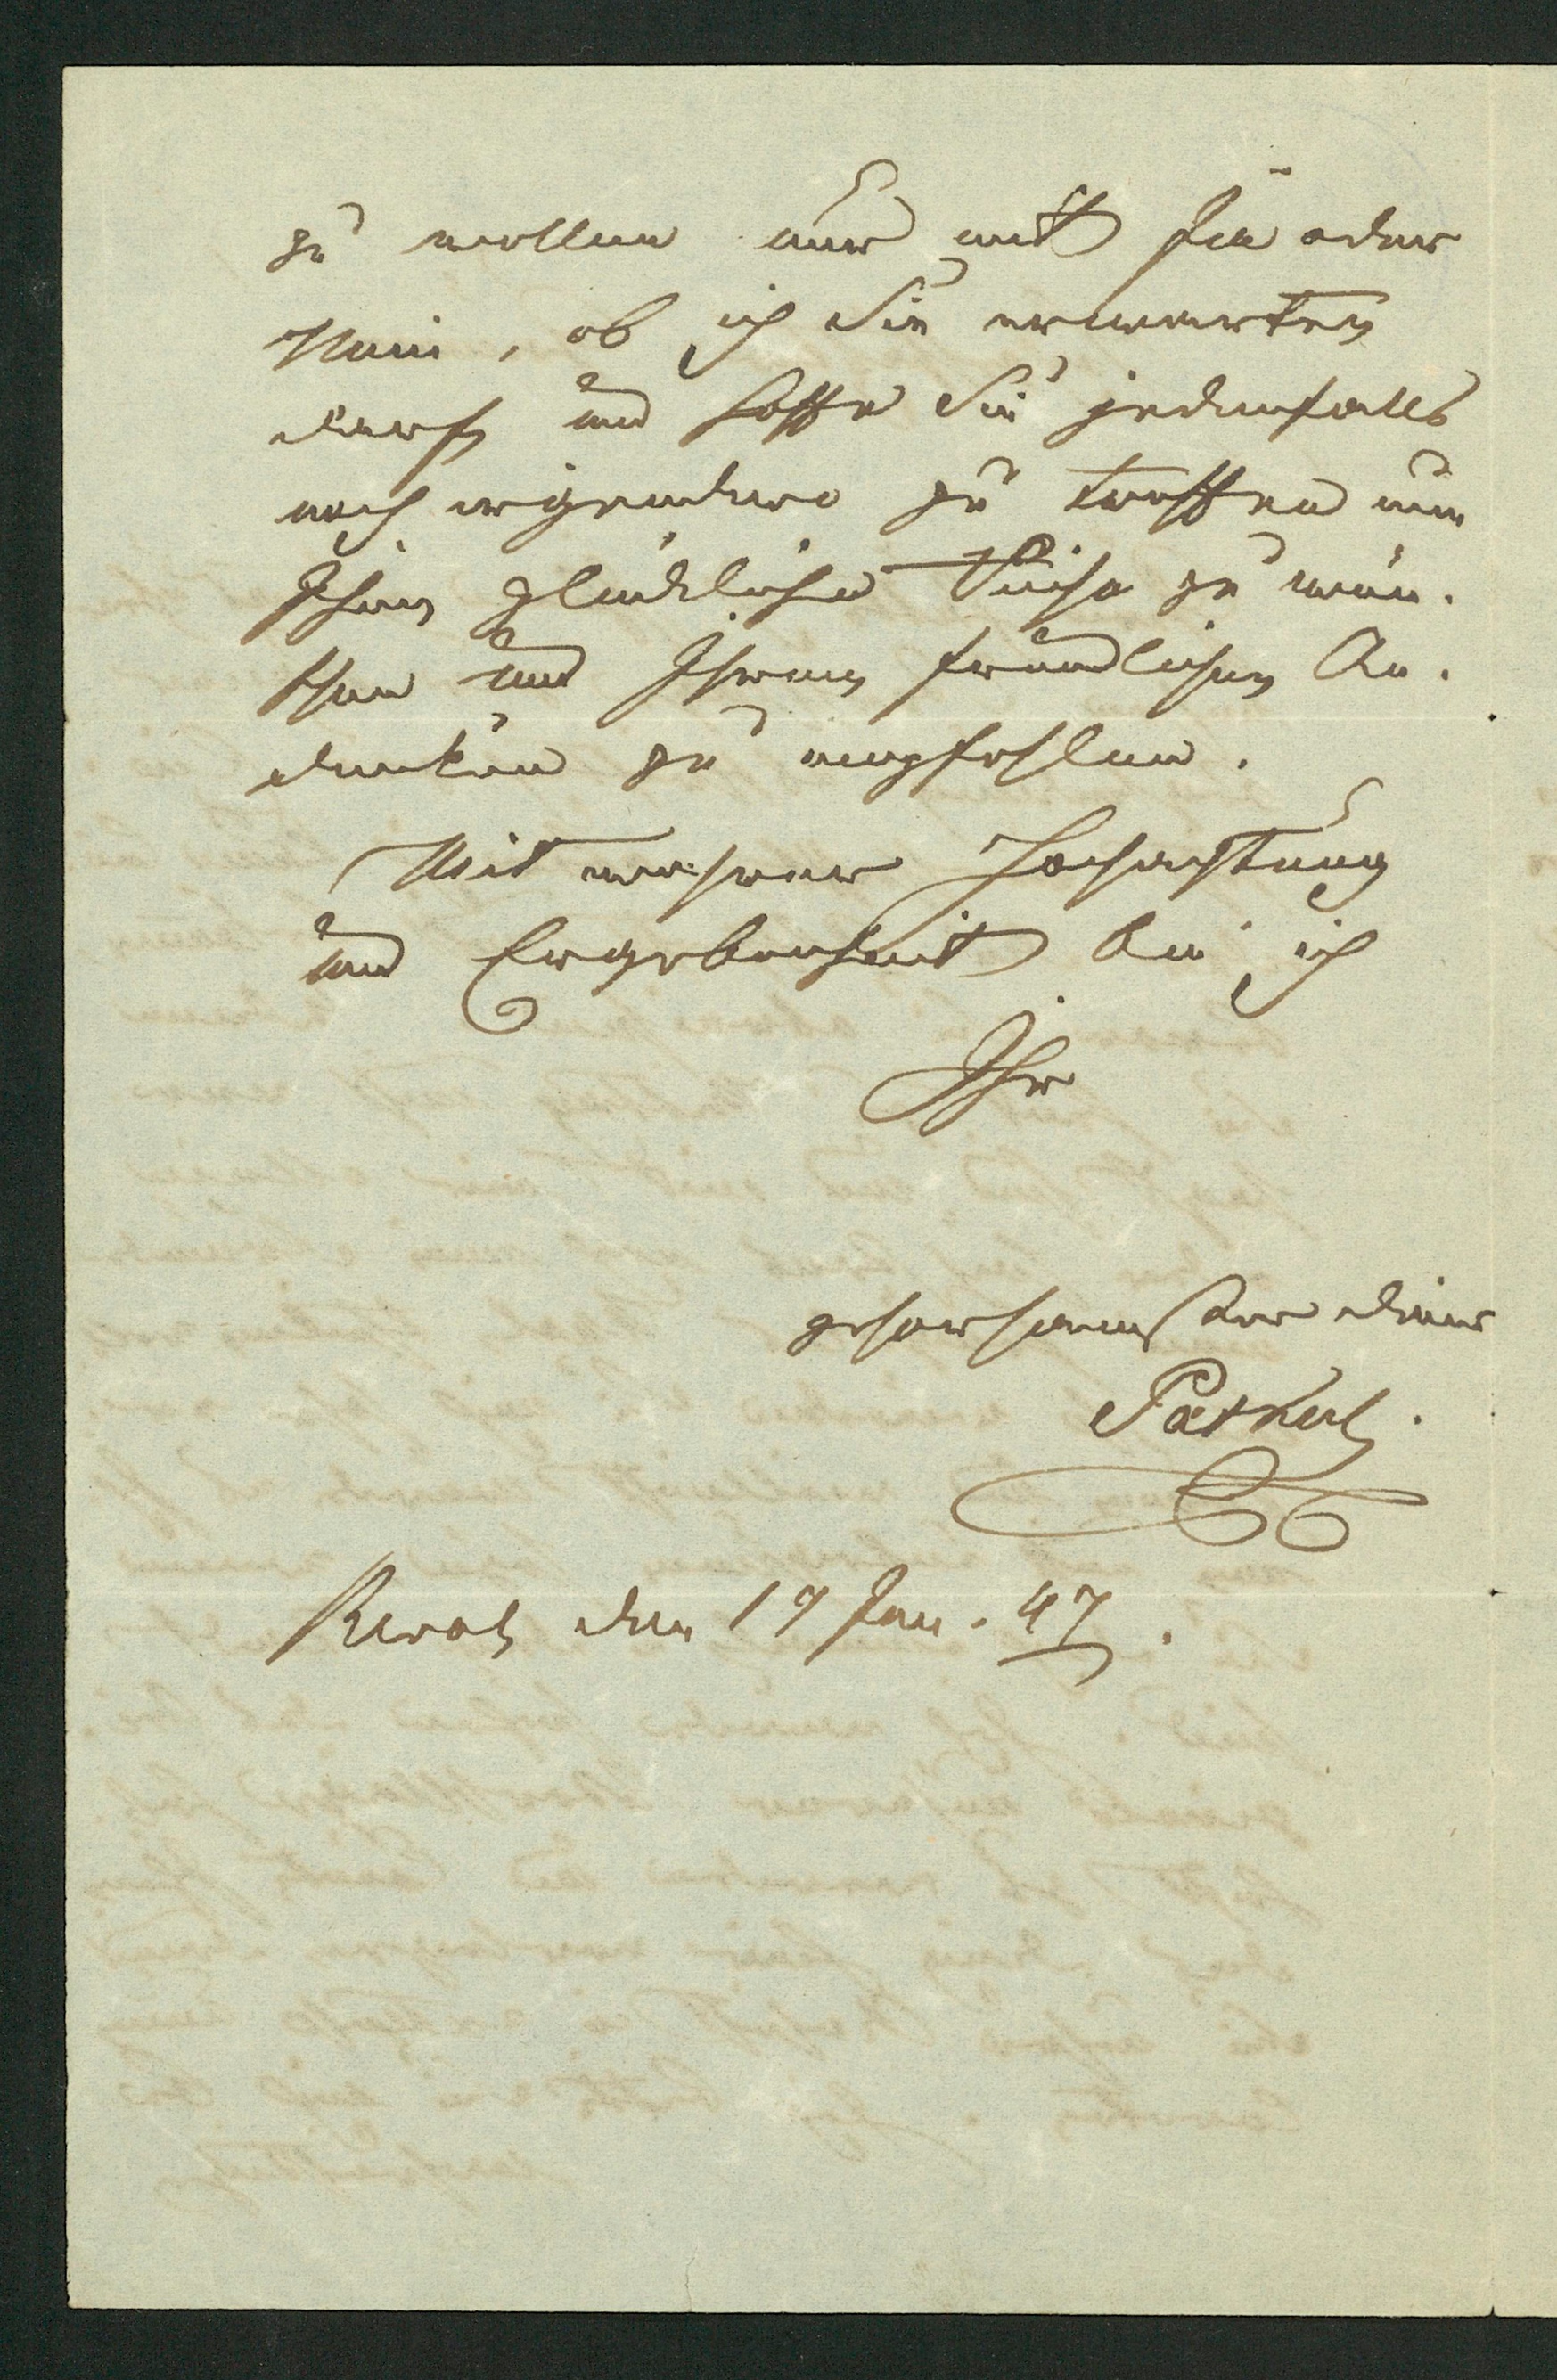 zu wollen nur mit Ja oder
Nein, ob ich Sie erwarten
darf und hoffe Sie jedenfalls
noch irgendwo zu treffen um
Ihnen glückliche Reise zu wün-
schen und Ihrem freundlichen An-
denken zu empfehlen.
Mit wahrer Hochachtung
und Ergebenheit bin ich
Ihr
gehorsamster Diener
Patkul.
Reval den 19 Jan. 47.